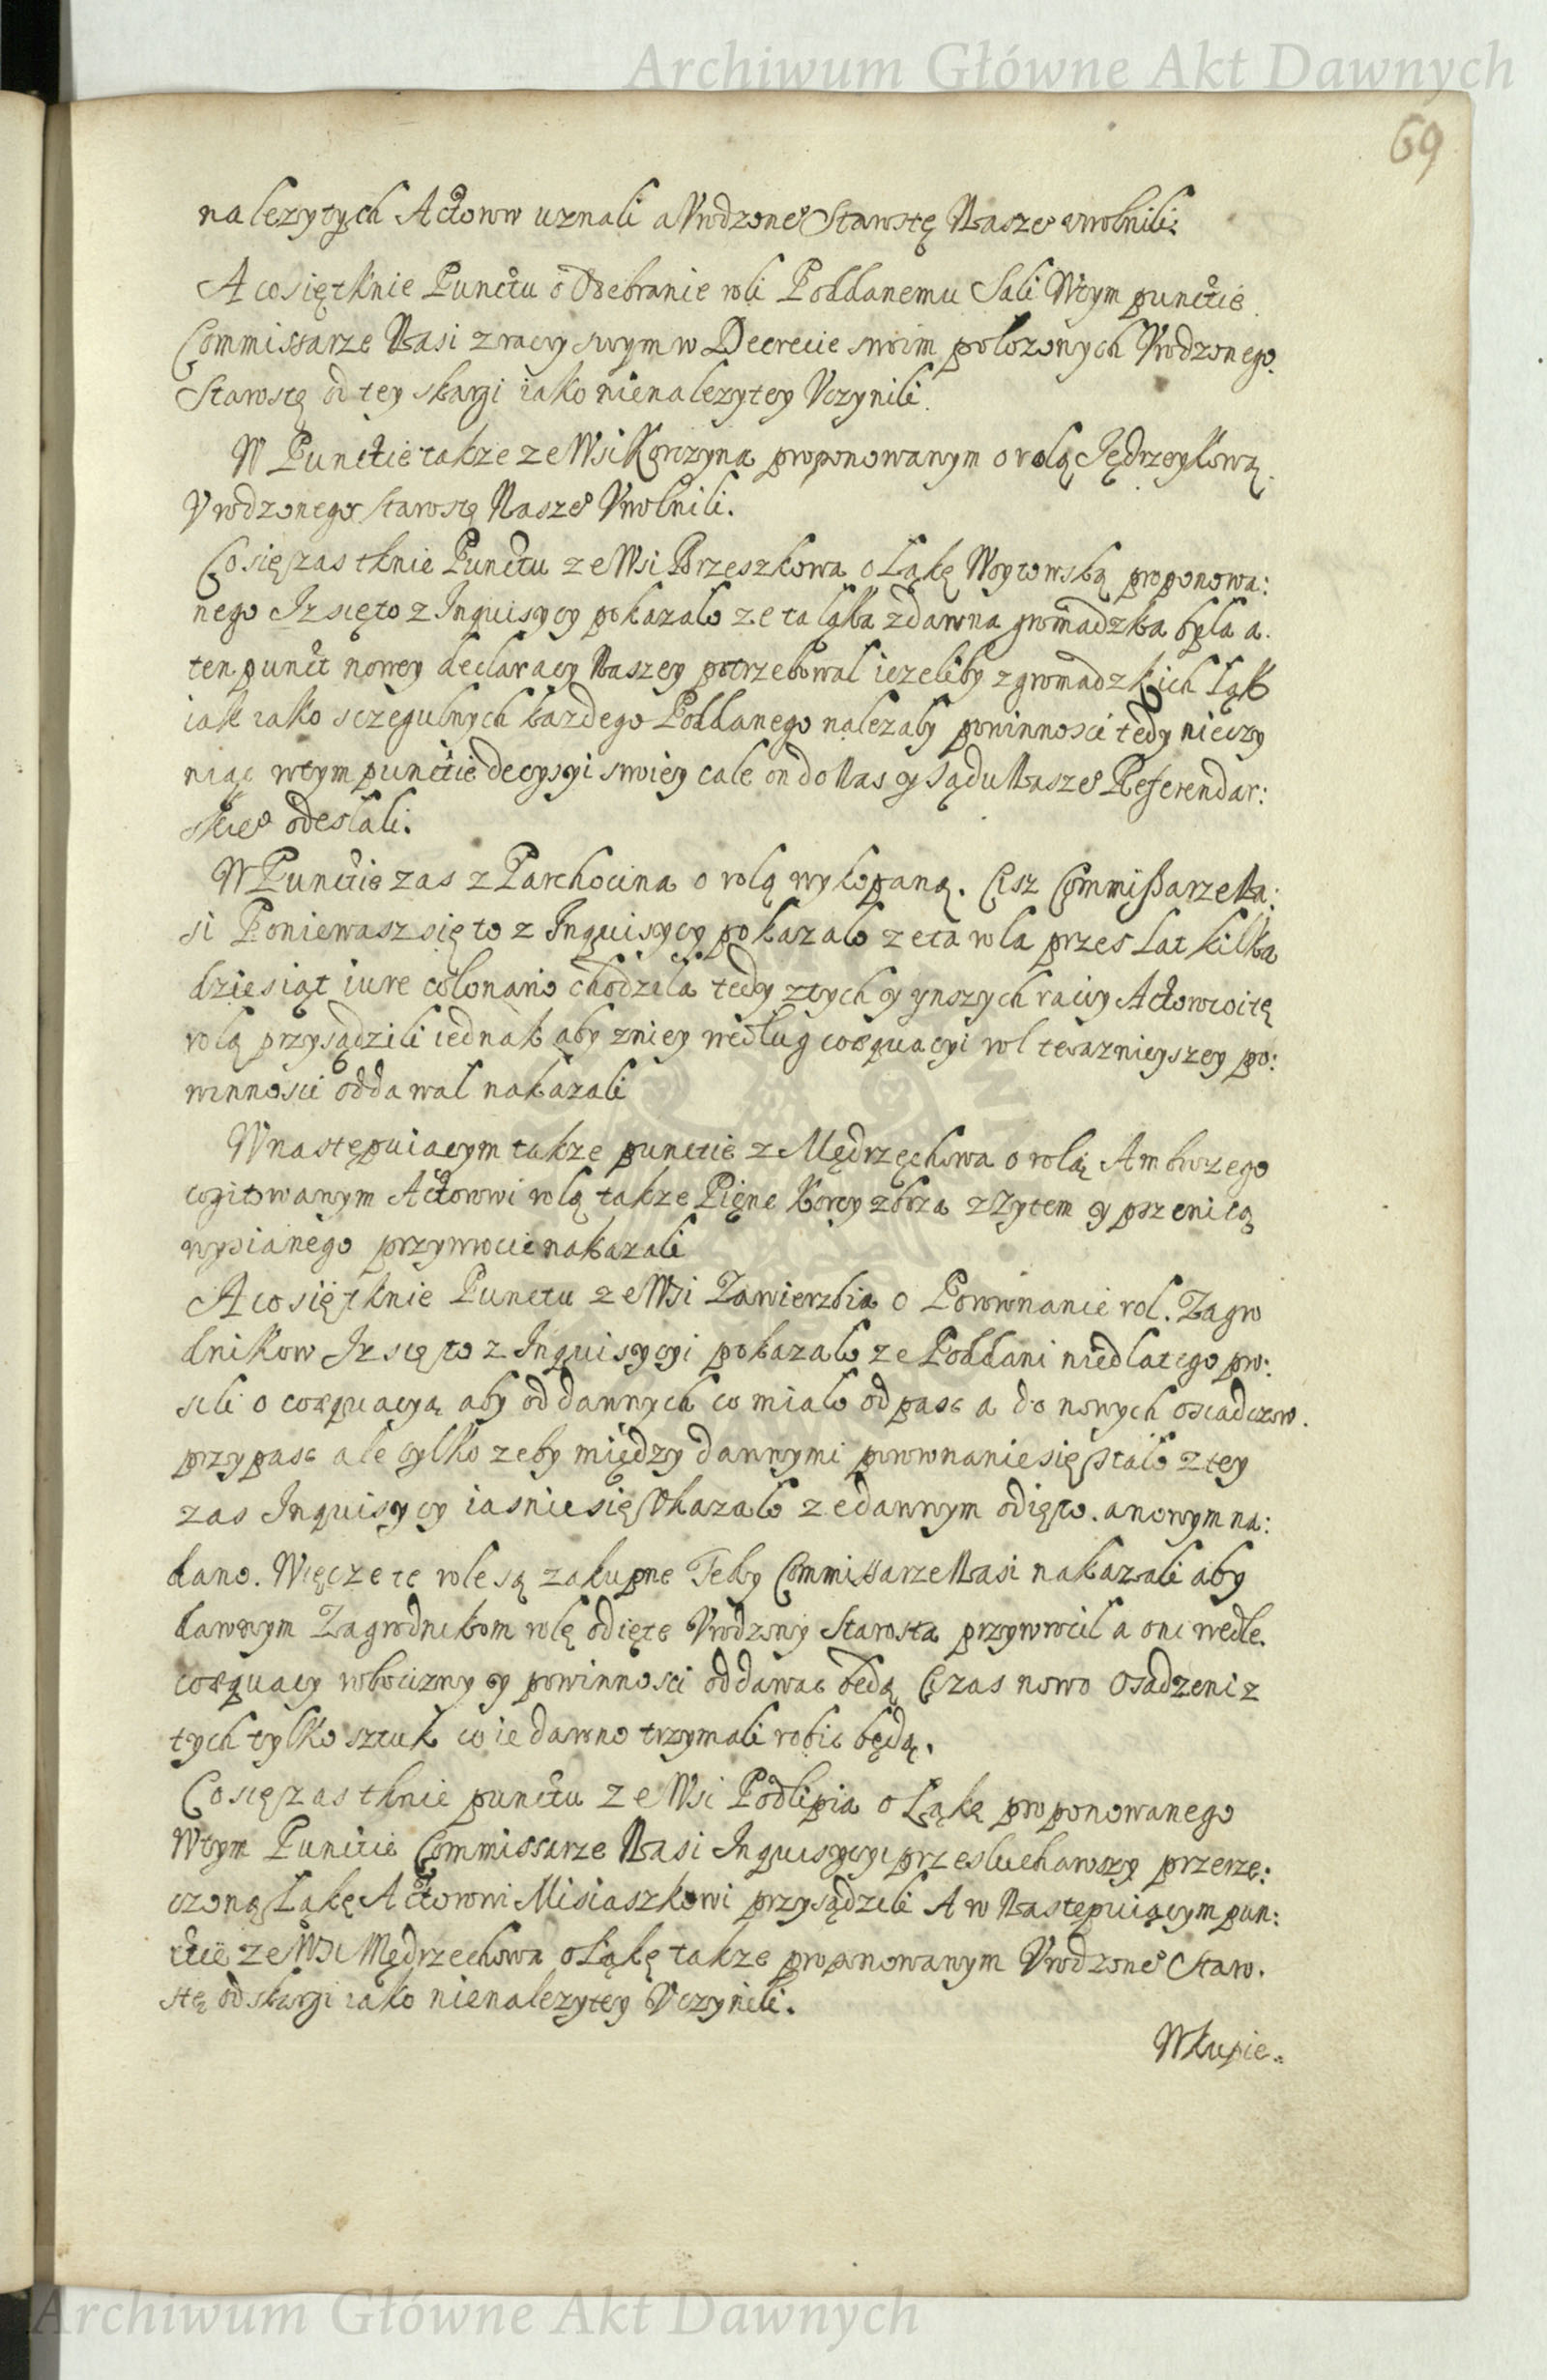 Archiwum Główne Akt Dawnych
69
nalezytych Actorow uznali a Vrodzone° Starostę Nasze° uwolnili.
A co się tknie Punctu o Odebranie roli Poddanemu Sali W tym punctie
Commissarze Nasi z racyi swym w Decrecie swoim polozonych Vrodzonego
Starostę od tey skargi iako nienalezytey Vczynili.
W Punctie takze ze Wsi Korczyna proponowanym o rolą Jędrzeykową
Vrodzonego Starostę Nasze° Vwolnili.
Co się zas tknie Punctu ze Wsi Brzeszkowa o Łąkę Woytowską proponowa:
nego Iz się to z Inquisycy pokazalo ze ta łąka zdawna gromadzka była a
ten punct nowey declaracy Naszey potrzebował iezeliby z gromadzkich Łąk
iak iako sczegulnych kazdego Poddanego nalezały powinnosci tedy nieczy
niąc w tym punctie decysyi swoiey cale on do Nas y sądu Nasze° Referendar:
skie° odesłali.
W Punctie zas z Parchocina o rolą wykopaną. Cisz Commißarze Na:
si Poniewasz się to z Inquisycy pokazalo ze ta rola przes Lat kilka
dziesiąt iure colonario chodziła tedy z tych y ynszych racyi Actorowi tę
rolą przysądzili iednak aby z niey według coæquacyi rol teraznieyszey po:
winnosci oddawał nakazali
W następuiącym takze punctie z Mędrzęchowa o rolą Ambrozego
cogitowanym Actorowi rolą takze Pięne Korcy zbrza z zytem y pszenicą
wysianego przywrocic nakazali
A co się tknie Punctu ze Wsi Zawierzbia o Porownanie rol. Zagro
dnikow Iz się to z Inquisycyi pokazalo ze Poddani niedlatego pro:
sili o coæquacyą aby od dawnych co miało odpasc a do nowych osiadczow.
przypasc ale tylko zeby między dawnymi porownanie się stalo z tey
zas Inquisycy iasnie się Okazalo ze dawnym odięto. a nowym na:
dano. Więc ze te role są zakupne Tedy Commissarze Nasi nakazali aby
dawnym Zagrodnikom rolę odięte Vrodzony Starosta przywrocił a oni wedle.
coæquacy robocizny y powinnosci oddawac będą Ci zas nowo Osadzeni z
tych tylko sztuk co ie dawno trzymali robic będą.
Co się zas tknie punctu ze Wsi Podlipia o Łąkę proponowanego
W tym Punctie Commissarze Nasi Inquisycyi przesluchawszy przerze:
czoną Łąkę Actorowi Misiaszkowi przysądzili A w Nastepuiącym pun:
ctie ze Wsi Mędrzechowa o Łąkę takze proponowanym Vrodzone° Staro.
stę od skargi iako nienalezytey Vczynili.
W kupie.
Archiwum Główne Akt Dawnych